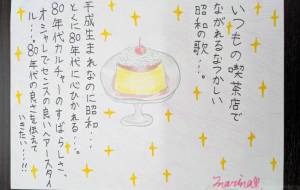 いつもの喫茶店で
ながれるなつかしい
昭和の歌…。
平成生まれなのに昭和…
とくに80年代に心ひかれる…。
80年代カルチャーのすばらしさ、
オシャレでセンスの良いヘアースタイ
ル…。80年代の良さを伝えて
いきたい…!!
marina